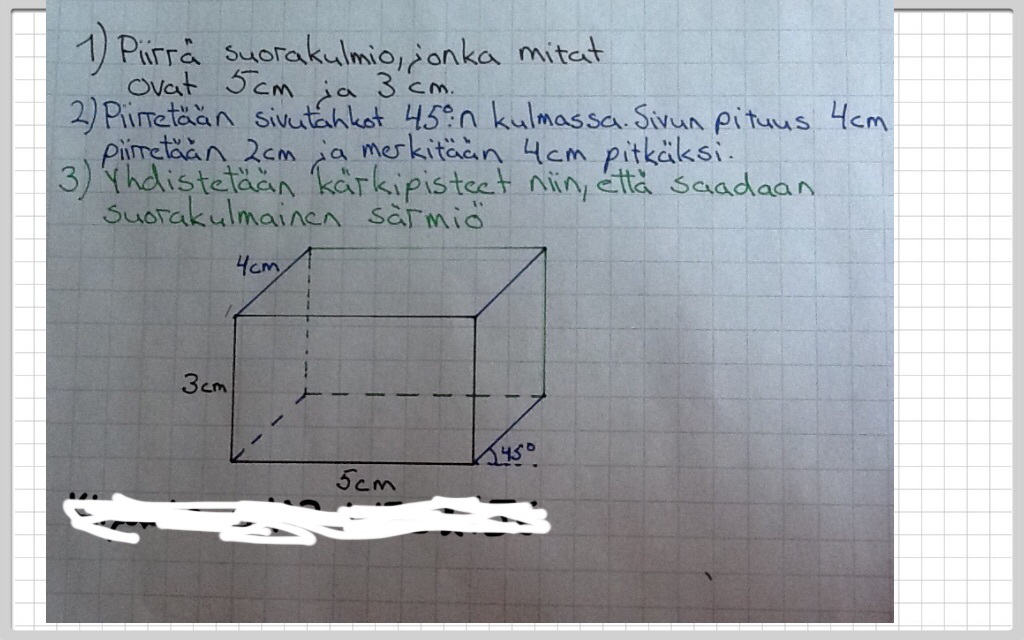 1) Piirrä suorakulmio, jonka mitat
ovat 5cm ja 3 cm.
2) Piirretään sivutahkot 45°:n kulmassa. Sivun pituus 4cm
piirretään 2cm ja merkitään 4cm pitkäksi.
3) Yhdistetään kärkipisteet niin, että saadaan
suorakulmainen särmiö
4cm
3cm
45°
5cm